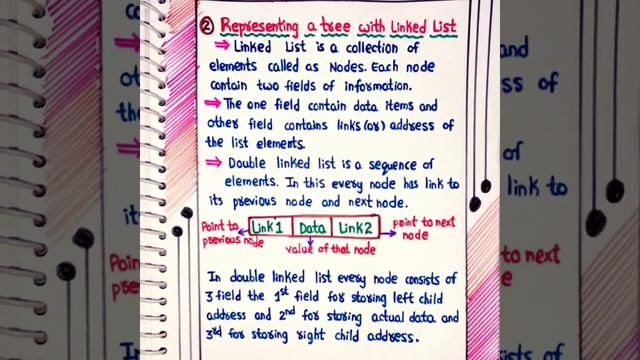 ② Representing a tree with Linked List
⇒ Linked List is a collection of
elements called as Nodes. Each node
contain two fields of information.
⇒ The one field contain data items and
other field contains links (or) address of
the list elements.
⇒ Double linked list is a sequence of
elements. In this every node has link to
its previous node and next node.
Point to previous node
Link1 Data Link2
point to next node
value of that node
In double linked list every node consists of
3 field the 1st field for storing left child
address and 2nd for storing actual data and
3rd for storing right child address.